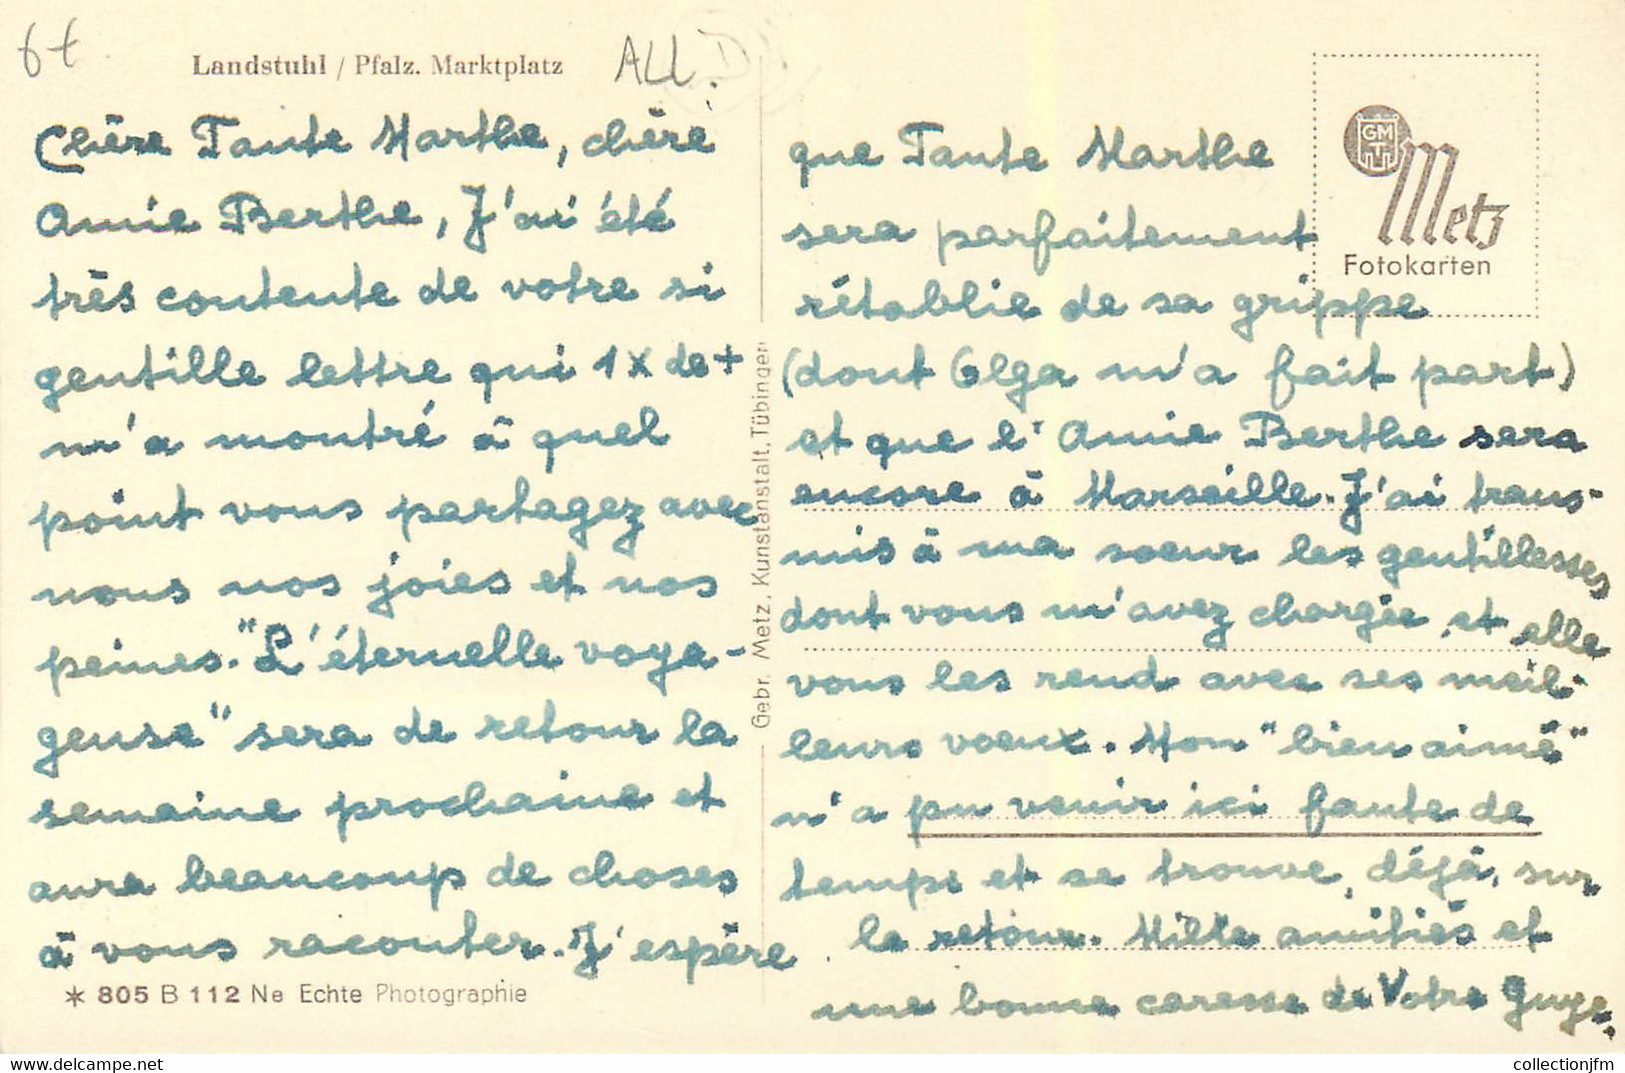 6t
Landstuhl / Pfalz. Marktplatz
ALL.
Chère Tante Marthe, chère
Amie Berthe, J'ai été
très contente de votre si
gentille lettre qui 1 x de +
m'a montré à quel
point vous partagez avec
nous nos joies et nos
peines. "L'éternelle voya-
geuse" sera de retour la
semaine prochaine et
aura beaucoup de choses
à vous raconter. J'espère
✶ 805 B 112 Ne Echte Photographie
Gebr. Metz, Kunstanstalt, Tübingen
GMT
Metz
Fotokarten
que Tante Marthe
sera parfaitement
rétablie de sa grippe
(dont Olga m'a fait part)
et que l'Amie Berthe sera
encore à Marseille. J'ai trans-
mis à ma soeur les gentillesses
dont vous m'avez chargée et elle
vous les rend avec ses meil-
leurs voeux. Mon "bien aimé"
n'a pu venir ici faute de
temps et se trouve, déjà, sur
le retour. Mille amitiés et
une bonne caresse de Votre
collectionjfm